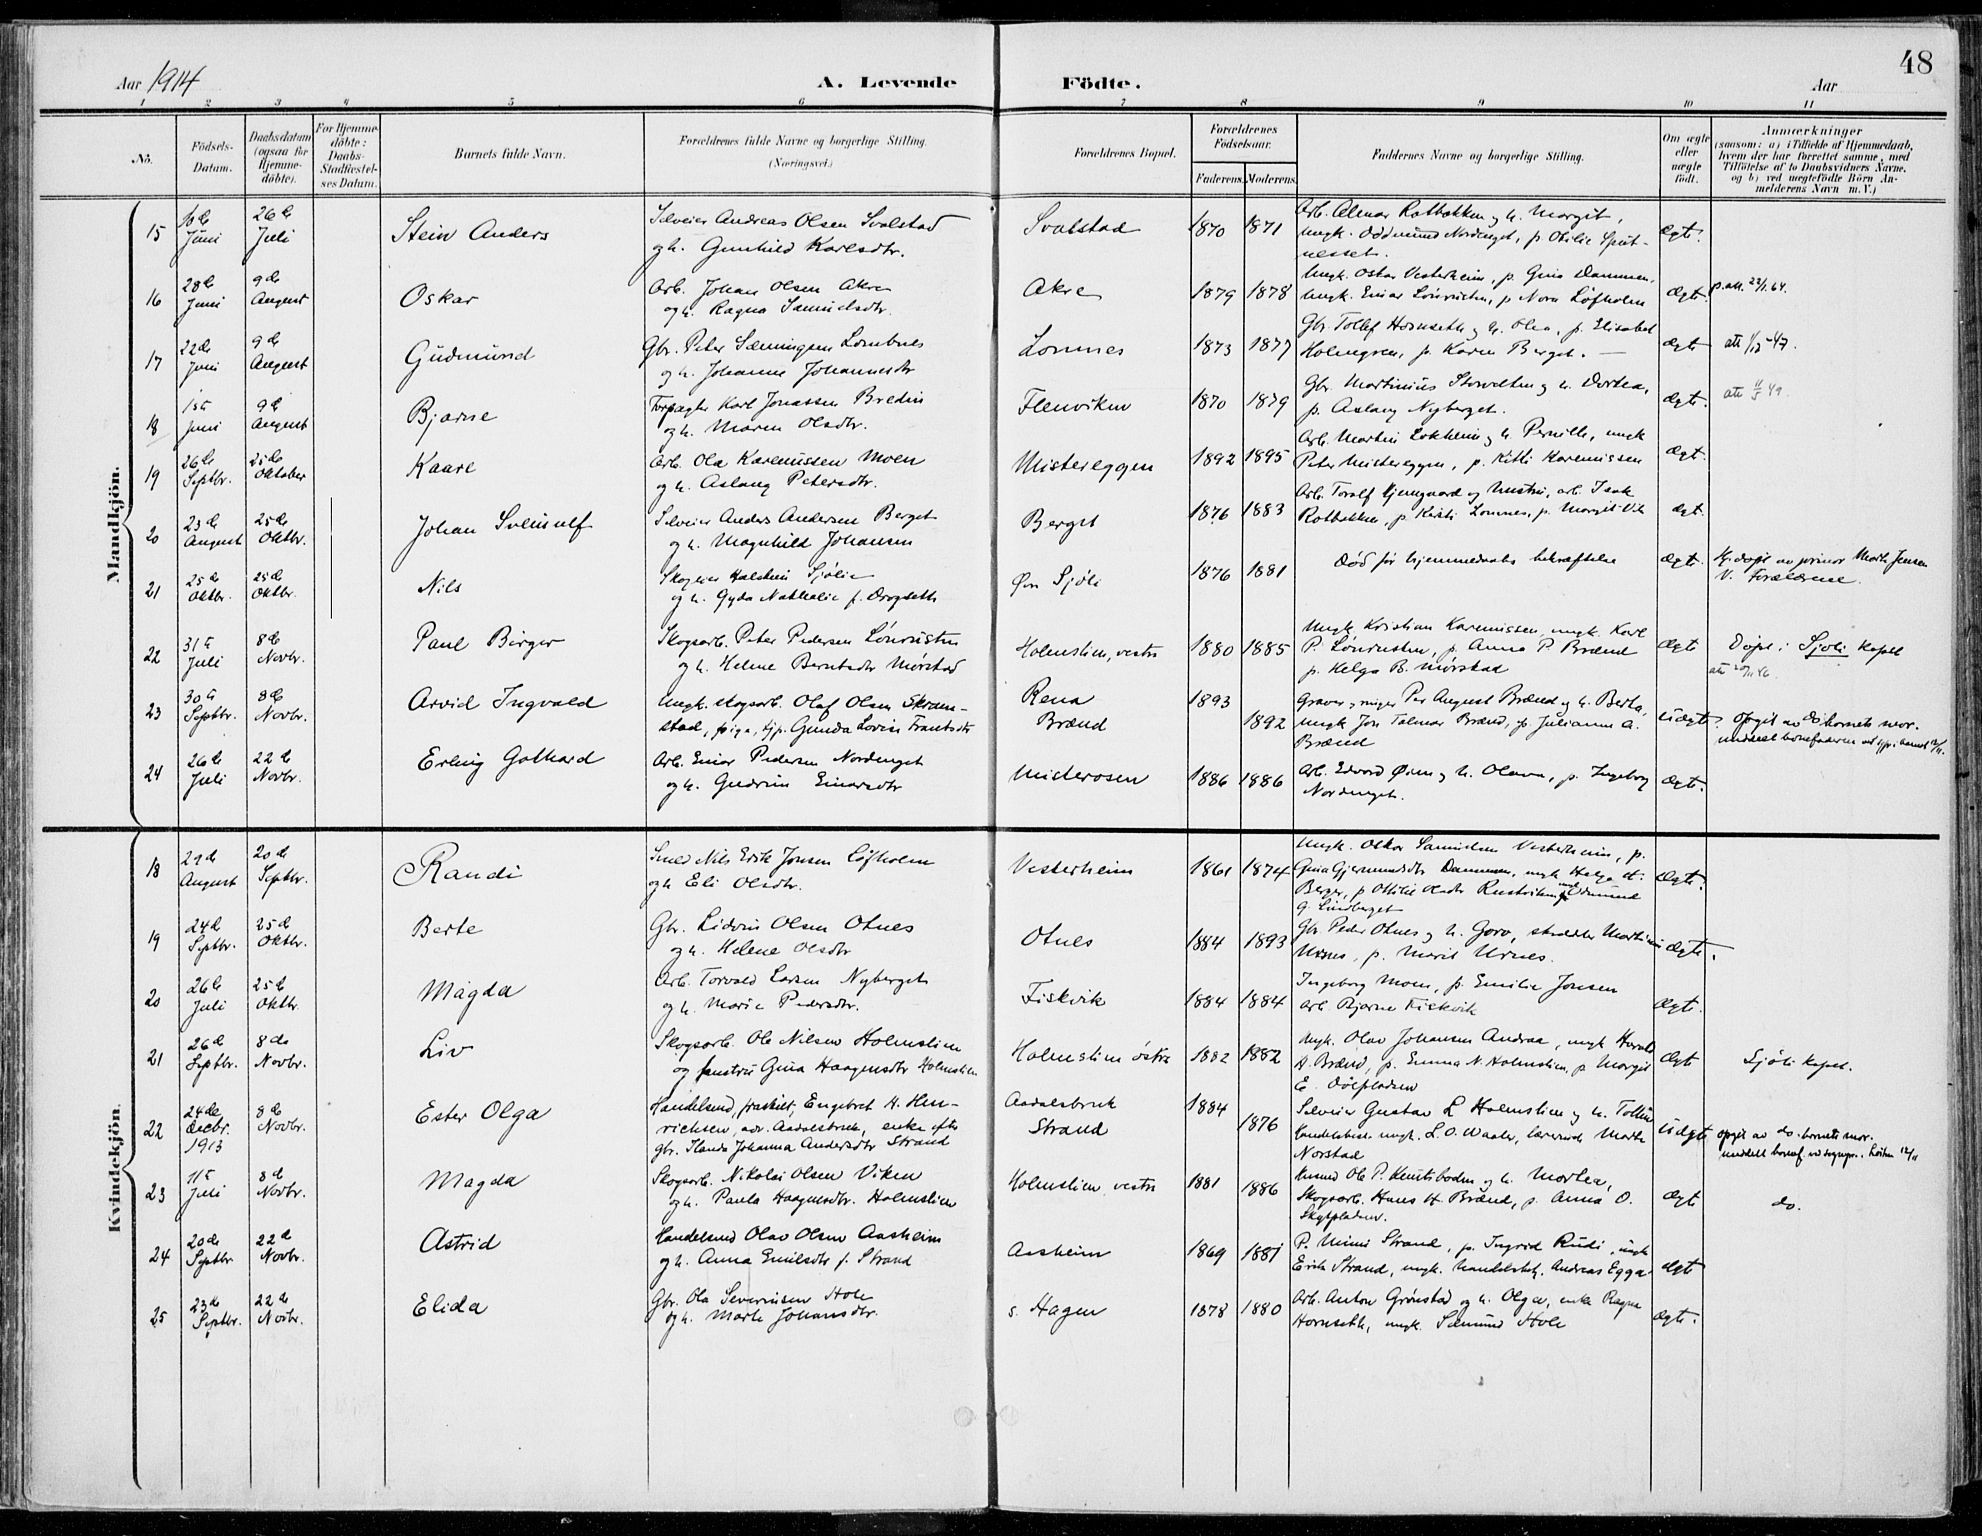 48
Aar 1914 A. Levende Födte. Aar
1 2 3 4 5 6 7 8 9 10 11
No. Födsels-Datum. Daabsdatum (ogsaa for Hjemme-döbte). For Hjemme-döbte: Daabs-Stadfæstel-ses Datum. Barnets fulde Navn. Forældrenes fulde Navne og borgerlige Stilling. (Næringsvei.) Forældrenes Bopæl. Forældrenes Födselsaar. Faderens. Moderens. Faddernes Navne og borgerlige Stilling. Om ægte eller uægte födt. Anmærkninger (saasom: a) i Tilfælde af Hjemmedaab, hvem der har forrettet samme, med Tilföielse af to Daabsvidners Navne, og b) ved uægtefödte Börn An-melderens Navn m. V.)
Mandkjön.
15 Juni 26 Juli Stein Anders Selveier Andreas Olsen Svalstad
og h. Gunhild Karlsdtr. Svalstad 1870 1871 Arb. Almar Rotbakken og h. Margit,
ungk. Oddmund Nordenget, p. Otilie ægte.
16 28de Juni 9de August Oskar Arb. Johan Olsen Akre
og h. Ragna Samuelsdtr. Akre 1879 1878 ungk. Oskar Vesterheim, p. Gina Dammen,
ungk. Einar Lönrusten, p Nora Løfholm ægte.
17 22de Juni 9de August Gudmund Gbr. Peter Sæmingsen Lombnes
og h. Johanne Johannesdtr Lomnes 1873 1877 Gbr. Tollef Hornseth og h. Olea, p. Elisabet
Holmgren, p. Karen Berget. — ægte
18 1ste Juni 9de August Bjarne Forpagter Karl Jonassen Bredin
og h. Maren Olsdtr. Flenviken 1870 1879 Gbr. Martinius Storvolten og h. Dortea,
p. Aslaug Nyberget. ægte.
19 26de Septbr. 25de Oktober Kaare Arb. Ola Karenussen Moen
og h. Aslaug Petersdtr. Mistereggen 1892 1895 Arb. Martin Lokheim og h. Pernille, ungk
Peter Mistereggen, p. Kitti Karenissen ægt.
20 23de August 25de Oktbr. Johan Sveinulf Selveier Anders Andersen Berget
og h. Magnhild Johansen Berget 1876 1883 Arb. Toralf Hjemgaard og hustru, arb. Isak
Rotbakken, p. Kirsti Lomnes, p. Margit Vik ægt.
21 25de Oktbr. 25de Oktbr. Nils Skogeier Halstein Sjølie
og h. Gyda Nathalie f. Drogseth Øvr Sjöli 1876 1881 Död før hjemmedaabs bekræftelse ægte. Hj. döpt av jormor Marth Jensen
V. Forældrene.
22 31te Juli 8de Novbr. Paul Birger Skogsarb. Peter Pedersen Lönrusten
og h. Helene Berntsdtr Mørstad Holmslien, vestre 1880 1885 Ungk Kristian Karenissen, ungk. Karl
P. Lönrusten, p. Anna P. Brænd
p. Helga B. Mörstad ægte Döpt i Sjöli Kapel
23 30te Septbr. 8de Novbr. Arvid Ingvald Ungk. skogsarb. Olaf Olsen Skram-
stad, pige, tjp. Gunda Lovise Frantsdtr Rena
Brænd 1893 1892 Graver, ringer Per August Brænd og h. Berta,
ungk. Jon Talmar Brænd, p. Julianne A.
Brænd uægte Opgit av do barnets mor.
24 26de Juli 22de Novbr. Erling Gothard Arb. Einar Pedersen Nordenget
og h. Gudrun Einarsdtr Misterosen 1886 1886 Arb. Edvard Øien og h. Olava, p. Ingeborg
Nordenget. ægte.
Kvindekjön.
18 21de August 20de Septbr. Randi Smed Nils Erik Jonsen Løfholm
og h. Eli Olsdtr. Vesterheim 1861 1874 Ungk. Oskar Samuelsen Vesterheim, p.
Gina Gjermundsdtr Dammen, ungk Helge H.
Berger, p Ottilie Olsdtr Rustviken
G. Lindberget ægte.
19 24de Septbr. 25de Oktbr. Berte Gbr. Lidvin Olsen Otnes
og h. Helene Olsdtr Otnes 1884 1893 Gbr. Peder Otnes og h. Goro, skrædder Martinus
Urnes, p. Marit Urnes. ægte.
20 26de Juli 25de Oktbr. Magda Arb. Torvald Larsen Nyberget
og h. Marie Pedersdtr. Fiskvik 1884 1884 Ingeborg Moen, p. Emilie Jonsen
Arb. Bjarne Fiskvik ægte.
21 26de Septbr. 8de Novbr. Liv Skogsarb. Ole Nilsen Holmslien
og hustru Gina Haagensdtr Holmslien Holmslien östre 1882 1882 Ungk. Olav Johansen Andraa, ungk Harald
A. Brænd, p. Emma N. Holmslien, p Margit
E. Dölpladsen ægte Sjöli kapel.
22 24de Decbr. 1913 8de Novbr. Ester Olga Handelsmd, fraskilt, Engebret H. Hen-
richsen, adr. Aadalsbruk, enke efter
gbr. Johanna Andersdtr Strand Aadalsbruk
Strand 1884 1876 Selveier Gustav L Holmslien og h. Tolline
Handelsbest. ungk. L.O. Waaler, lærerinde Marte
Norstad uægte opgit av do. barnets mor.
23 11te Juli 8de Novbr. Magda Skogsarb. Nikolai Olsen Viken
og h. Paula Haagensdtr. Holmslien Holmslien, vestre 1881 1886 Ole P. Knutsboden og h. Martea,
Skogsarb. Hans H. Brænd, p. Anna O.
Skytpladsen. ægte do.
24 20de Septbr 22de Novbr. Astrid Handelsmd Olav Olsen Aasheim
og h. Anna Emilsdtr f. Strand Aasheim 1869 1881 P. Mimi Strand, p. Ingrid Rudi, ungk
Erik Strand, ungk. handelsbetj. Andreas Egga ægte
25 23de Septbr. 22de Novbr. Elida Gbr. Ola Severinsen Hole
og h. Marte Johansdtr. s. Hagen 1878 1880 Arb. Anton Grönstad og h. Olga, enke Ragna
Hornseth, ungk. Sæmund Hole ægte.